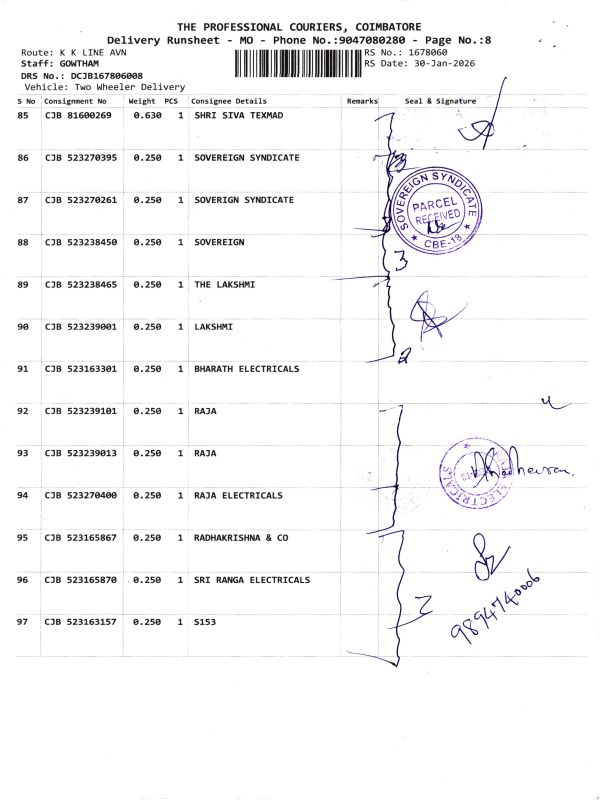 THE PROFESSIONAL COURIERS, COIMBATORE
Delivery Runsheet - MO - Phone No.:9047080280 - Page No.:8
Route: K K LINE AVN
RS No.: 1678060
Staff: GOWTHAM
RS Date: 30-Jan-2026
DRS No.: DCJB167806008
Vehicle: Two Wheeler Delivery
S No Consignment No Weight PCS Consignee Details Remarks Seal & Signature
85 CJB 81600269 0.630 1 SHRI SIVA TEXMAD
86 CJB 523270395 0.250 1 SOVEREIGN SYNDICATE
87 CJB 523270261 0.250 1 SOVERIGN SYNDICATE
SOVEREIGN SYNDICATE
PARCEL
RECEIVED
CBE-18
88 CJB 523238450 0.250 1 SOVEREIGN
3
89 CJB 523238465 0.250 1 THE LAKSHMI
90 CJB 523239001 0.250 1 LAKSHMI
2
91 CJB 523163301 0.250 1 BHARATH ELECTRICALS
92 CJB 523239101 0.250 1 RAJA
93 CJB 523239013 0.250 1 RAJA
ELECTRICALS
94 CJB 523270400 0.250 1 RAJA ELECTRICALS
95 CJB 523165867 0.250 1 RADHAKRISHNA & CO
96 CJB 523165870 0.250 1 SRI RANGA ELECTRICALS
9894740006
97 CJB 523163157 0.250 1 S153